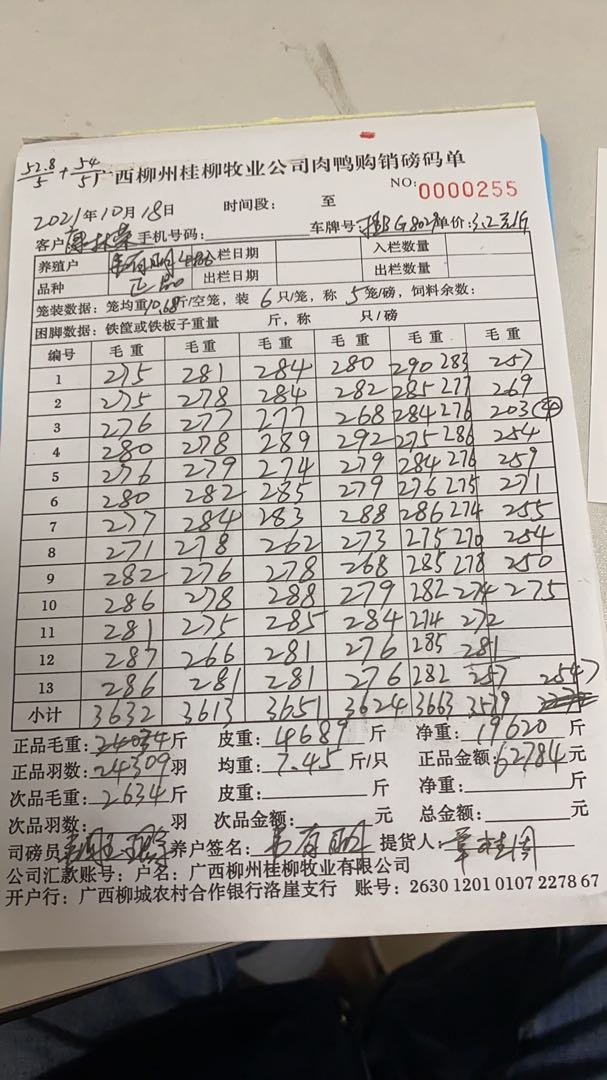 52.8/5 + 54/5
广西柳州桂柳牧业公司肉鸭购销磅码单
NO: 0000255
2021年10月18日 时间段: 至
客户 手机号码: 车牌号: 单价:
养殖户 入栏日期 入栏数量
品种 正品 出栏日期 出栏数量
笼装数据: 笼均重10.68斤/空笼, 装 6 只/笼, 称 5 笼/磅, 饲料余数:
困脚数据: 铁筐或铁板子重量 斤, 称 只/磅
编号 毛重 毛重 毛重 毛重 毛重 毛重
1 275 281 284 280 290 283 257
2 275 278 284 282 285 277 269
3 276 277 277 268 284 276 203 ④
4 280 278 289 292 275 286 254
5 276 279 274 279 284 276 259
6 280 282 285 279 276 275 271
7 277 284 283 288 286 274 255
8 271 278 262 273 275 270 254
9 282 276 278 268 285 278 250
10 286 278 288 279 282 274 275
11 281 275 285 284 274 272
12 287 266 281 276 285 281
13 286 281 281 276 282 257 2547
小计 3632 3613 3651 3624 3663 3579
正品毛重: 斤 皮重: 4689 斤 净重: 19620 斤
正品羽数: 24309 羽 均重: 7.45 斤/只 正品金额: 62784 元
次品毛重: 2634 斤 皮重: 斤 净重: 斤
次品羽数: 羽 次品金额: 元 总金额: 元
司磅员: 养户签名: 韦有明 提货人:
公司汇款账号: 户名: 广西柳州桂柳牧业有限公司
开户行: 广西柳城农村合作银行洛崖支行 账号: 2630 1201 0107 2278 67